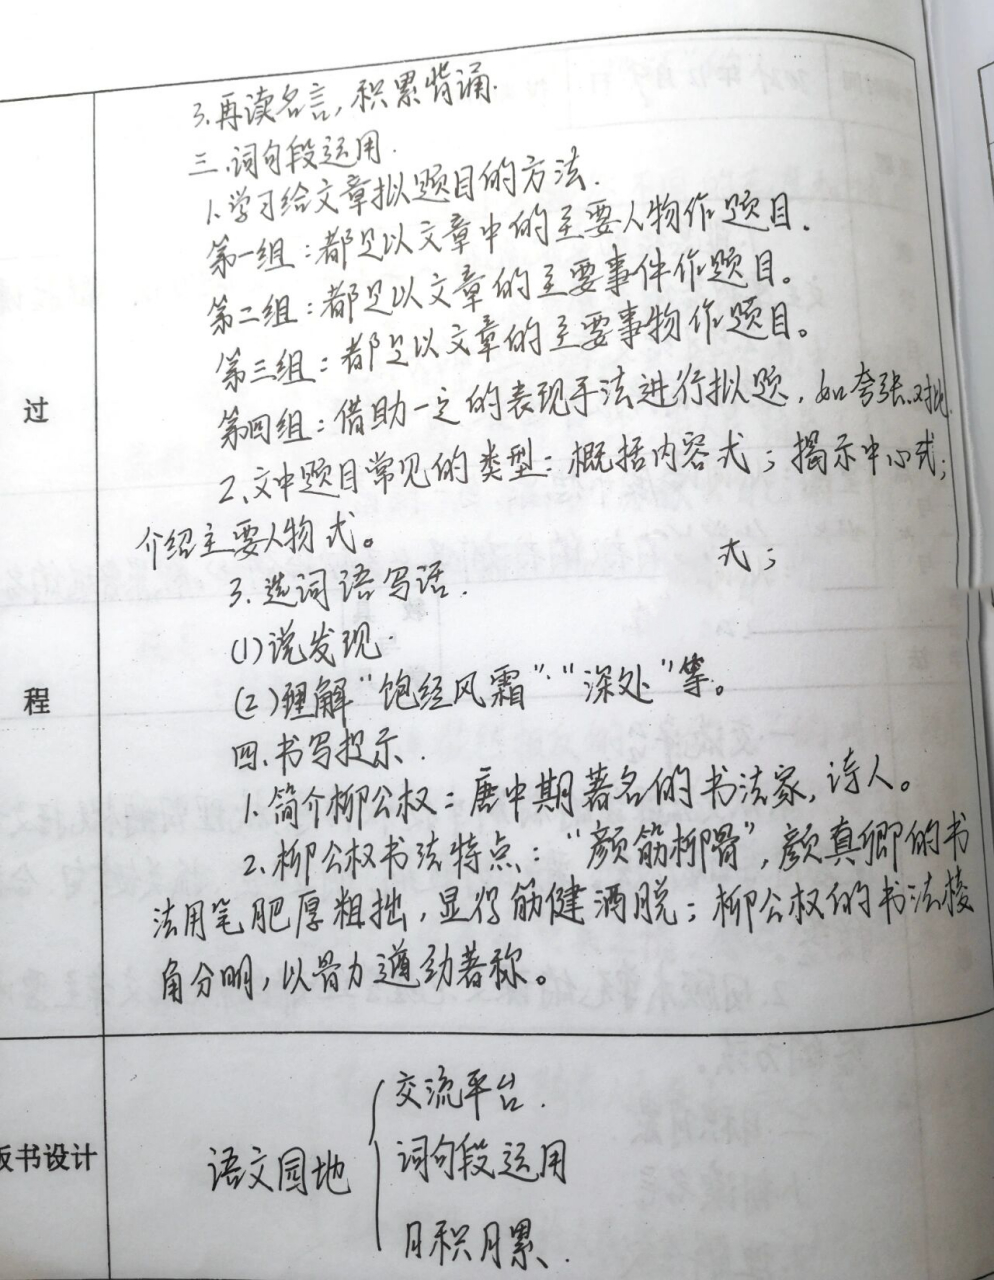 3.再读名言,积累背诵.
三.词句段运用.
1.学习给文章拟题目的方法.
第一组:都是以文章中的主要人物作题目.
第二组:都是以文章的主要事件作题目。
第三组:都是以文章的主要事物作题目。
第四组:借助一定的表现手法进行拟题,如夸张.对比.
2.文中题目常见的类型:概括内容式;揭示中心式;
介绍主要人物式。
式;
3.选词语写话.
(1)说发现.
(2)理解“饱经风霜”.“深处”等。
四.书写提示.
1.简介柳公权:唐中期著名的书法家,诗人。
2.柳公权书法特点:“颜筋柳骨”,颜真卿的书
法用笔肥厚粗拙,显得筋健洒脱;柳公权的书法棱
角分明,以骨力遒劲著称。
过
程
板书设计
语文园地
交流平台.
词句段运用
日积月累.